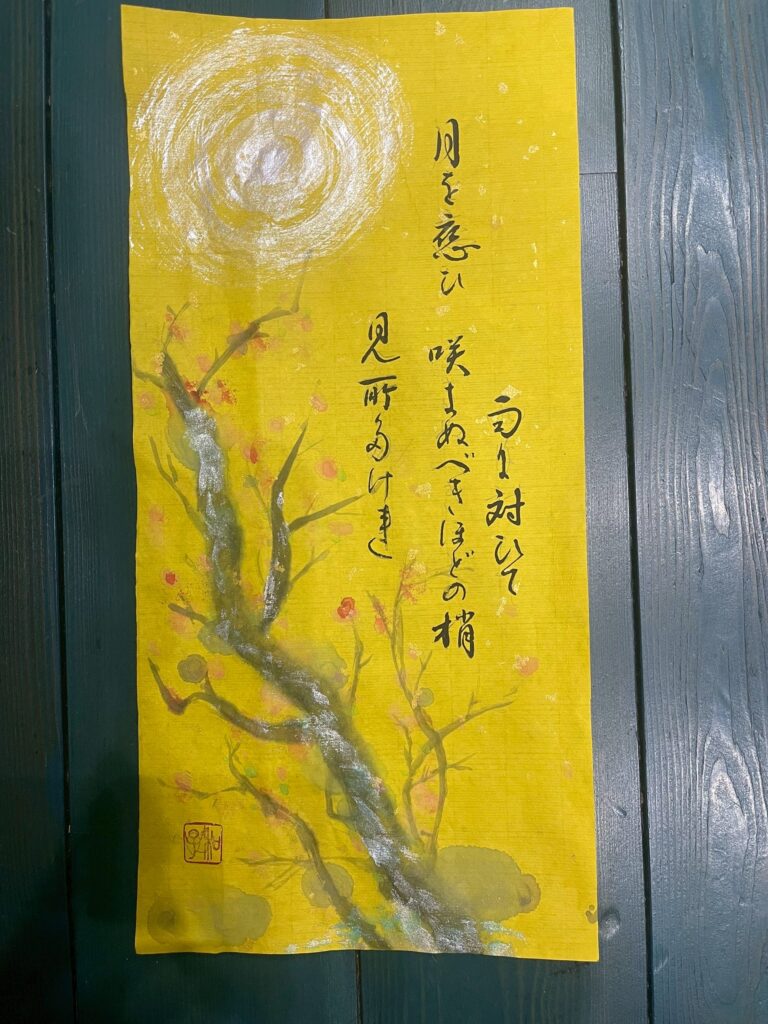 雨に対ひて
月を恋ひ
咲きぬべきほどの梢
見所多けれ